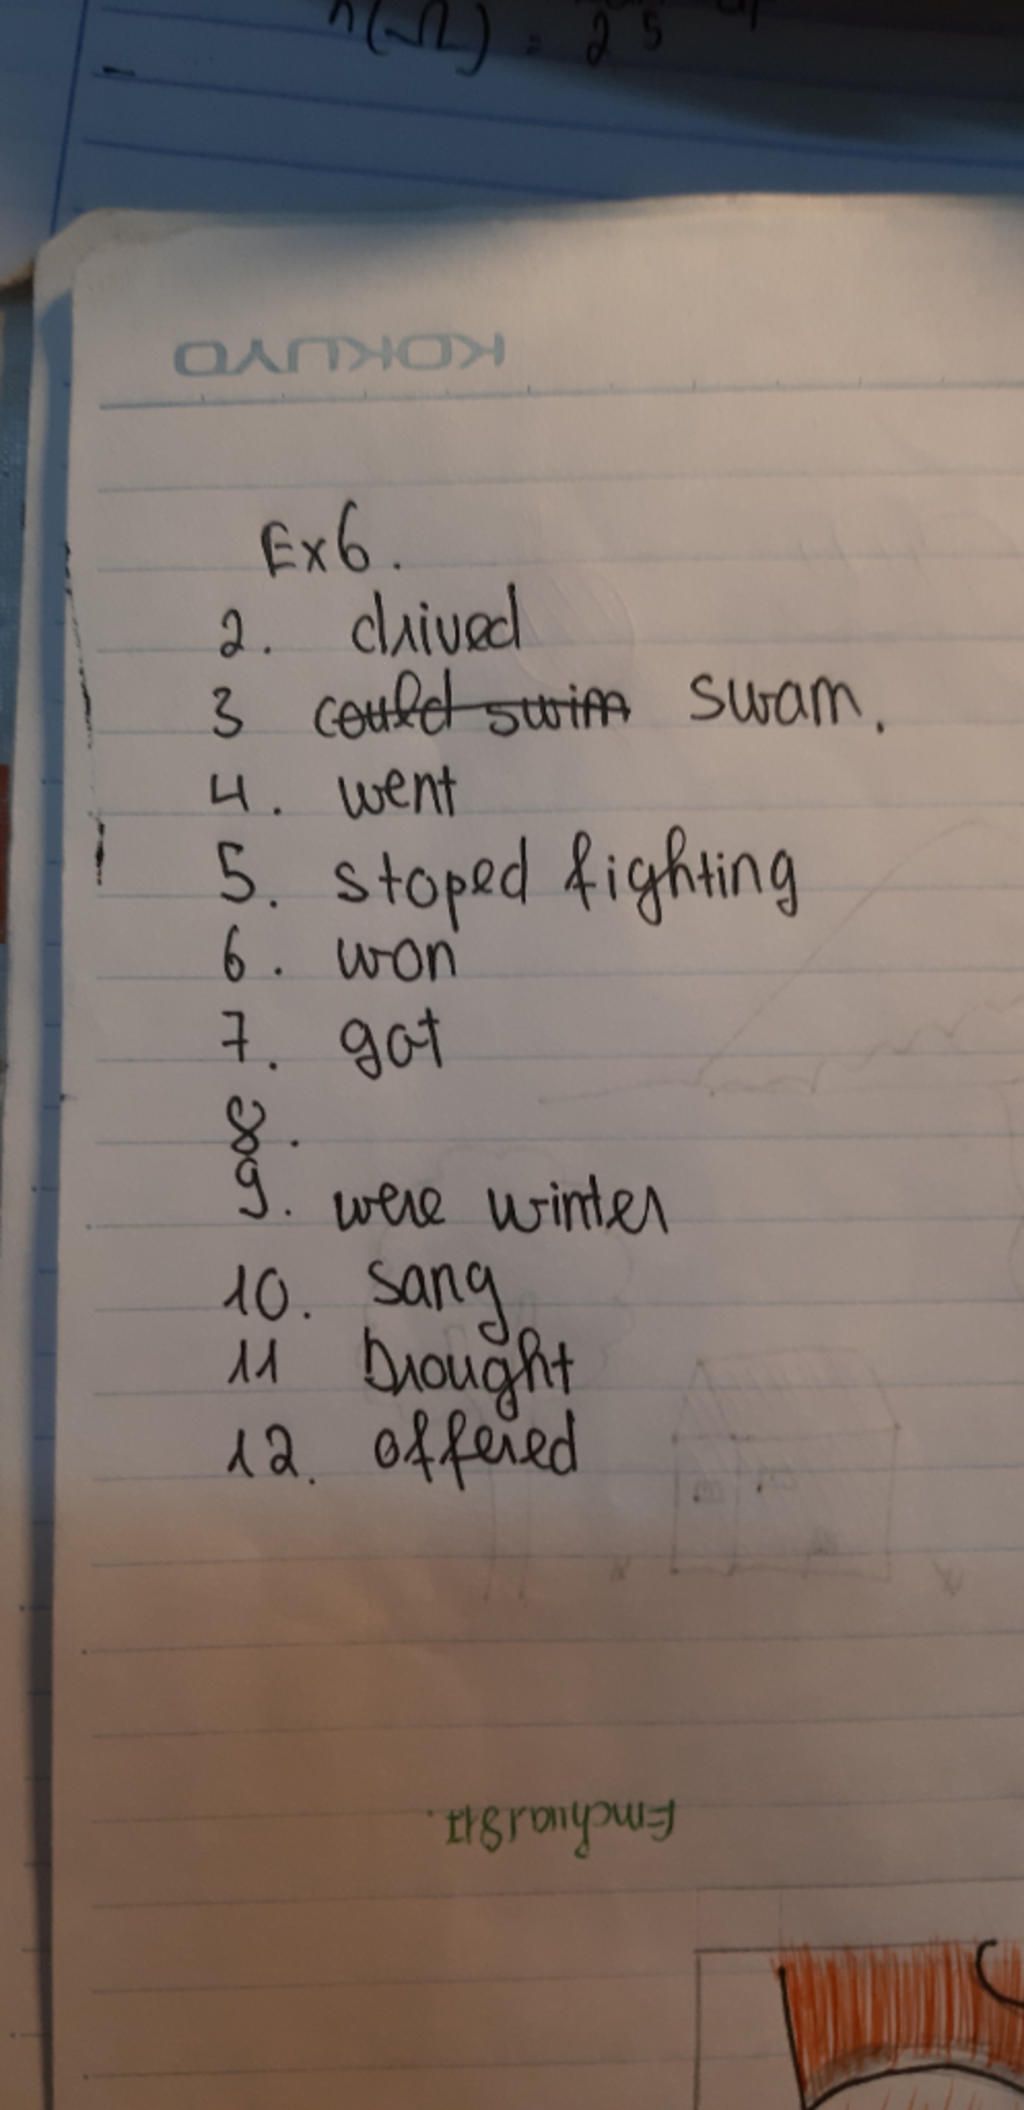 n(Ω) = 25
KOKUYO
Ex6.
2. drived
3 could swim swam.
4. went
5. stoped fighting
6. won
7. got
8.
9. were winter
10. sang
11 brought
12. offered